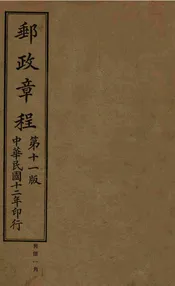 郵政章程
第十一版
中華民國十二年印行